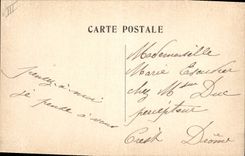 III
CARTE POSTALE
Mademoiselle
Marie
chez Mr Duc
percepteur
Crest Drôme
pensez à moi
je pense à vous